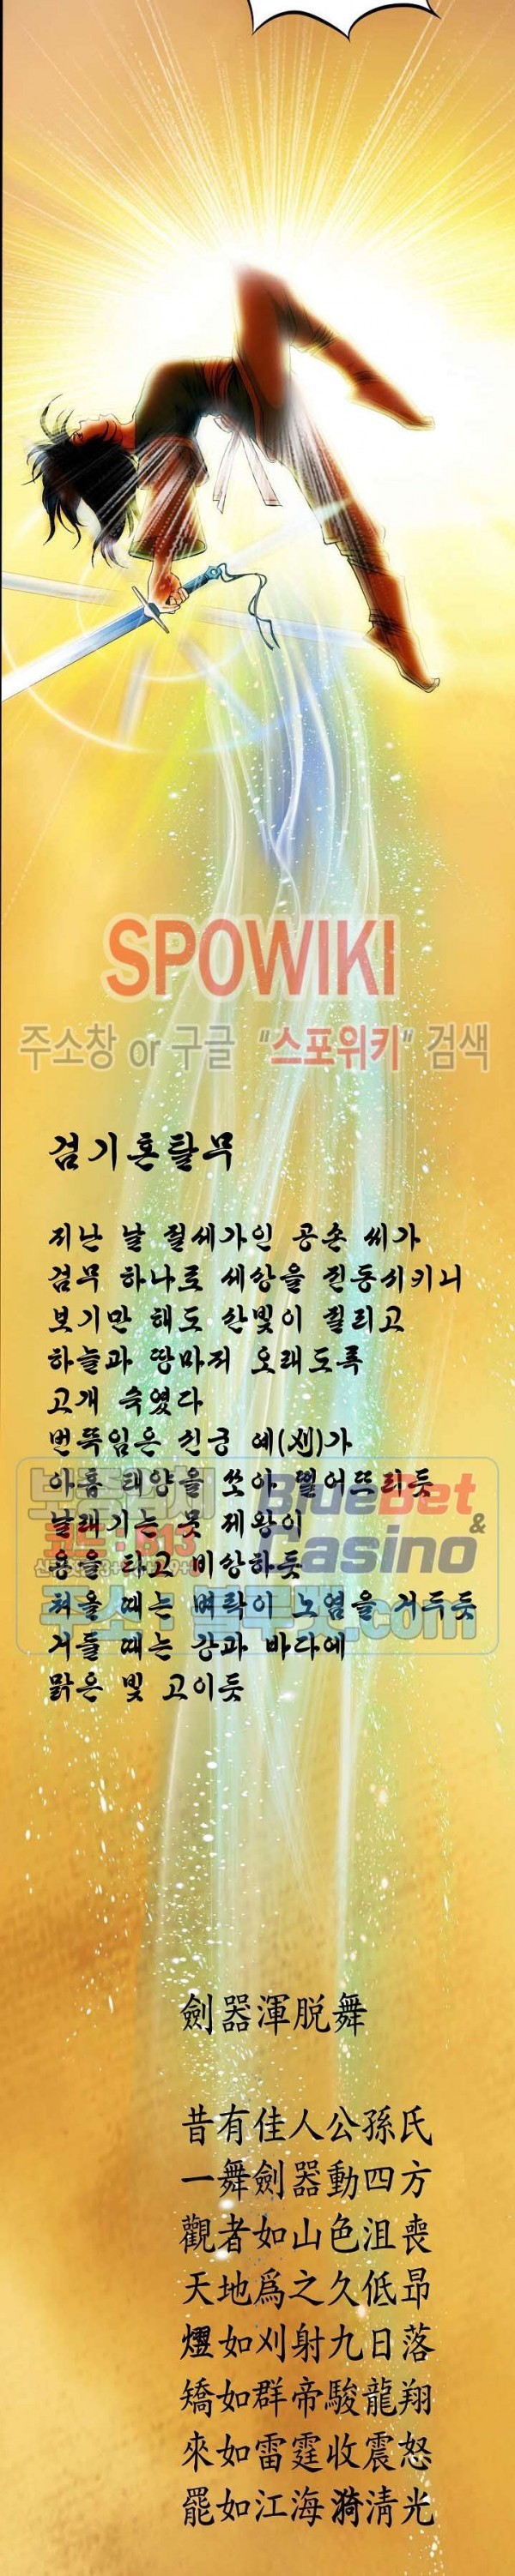 SPOWIKI
주소창 or 구글 "스포위키" 검색
검기혼탈무
지난 날 절세가인 공손 씨가
검무 하나로 세상을 진동시키니
보기만 해도 산빛이 질리고
하늘과 땅마저 오래도록
고개 숙였다
번뜩임은 신궁 예(刈)가
아홉 태양을 쏘아 떨어뜨리듯
날래기는 뭇 제왕이
용을 타고 비상하듯
쳐올 때는 벼락이 노염을 거두듯
거둘 때는 강과 바다에
맑은 빛 고이듯
BlueBet
&
Casino
코드 : B13
劍器渾脫舞
昔有佳人公孫氏
一舞劍器動四方
觀者如山色沮喪
天地爲之久低昻
㸌如刈射九日落
矯如群帝駿龍翔
來如雷霆收震怒
罷如江海漪淸光